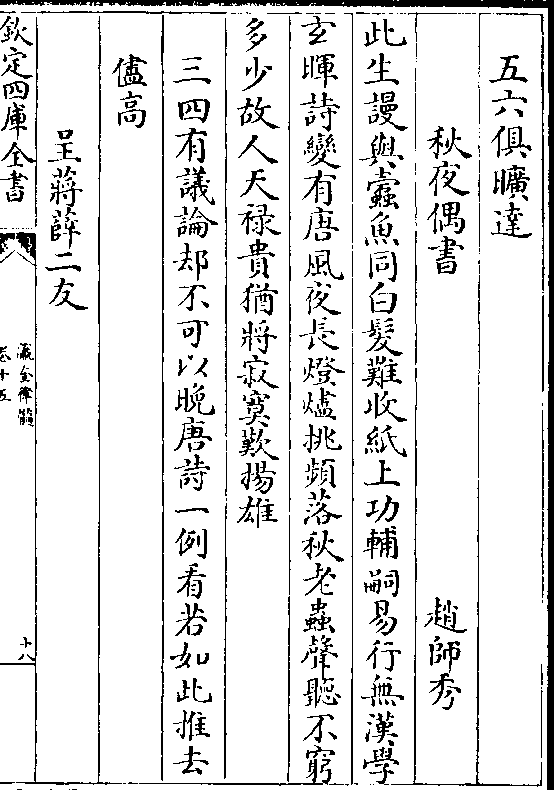 五六俱曠達
秋夜偶書　趙師秀
此生謾與蠹魚同白髮難收紙上功輔嗣易行無漢學
玄暉詩變有唐風夜長燈燼挑頻落秋老蟲聲聽不窮
多少故人天禄貴猶將寂寞歎揚雄
三四有議論却不可以晚唐詩一例看若如此推去
儘高
呈蔣薛二友
欽定四庫全書
瀛奎律髓
卷十五
十八